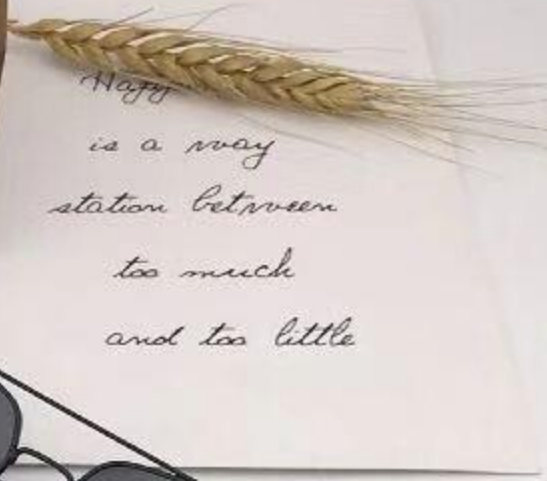 is a way
station between
too much
and too little